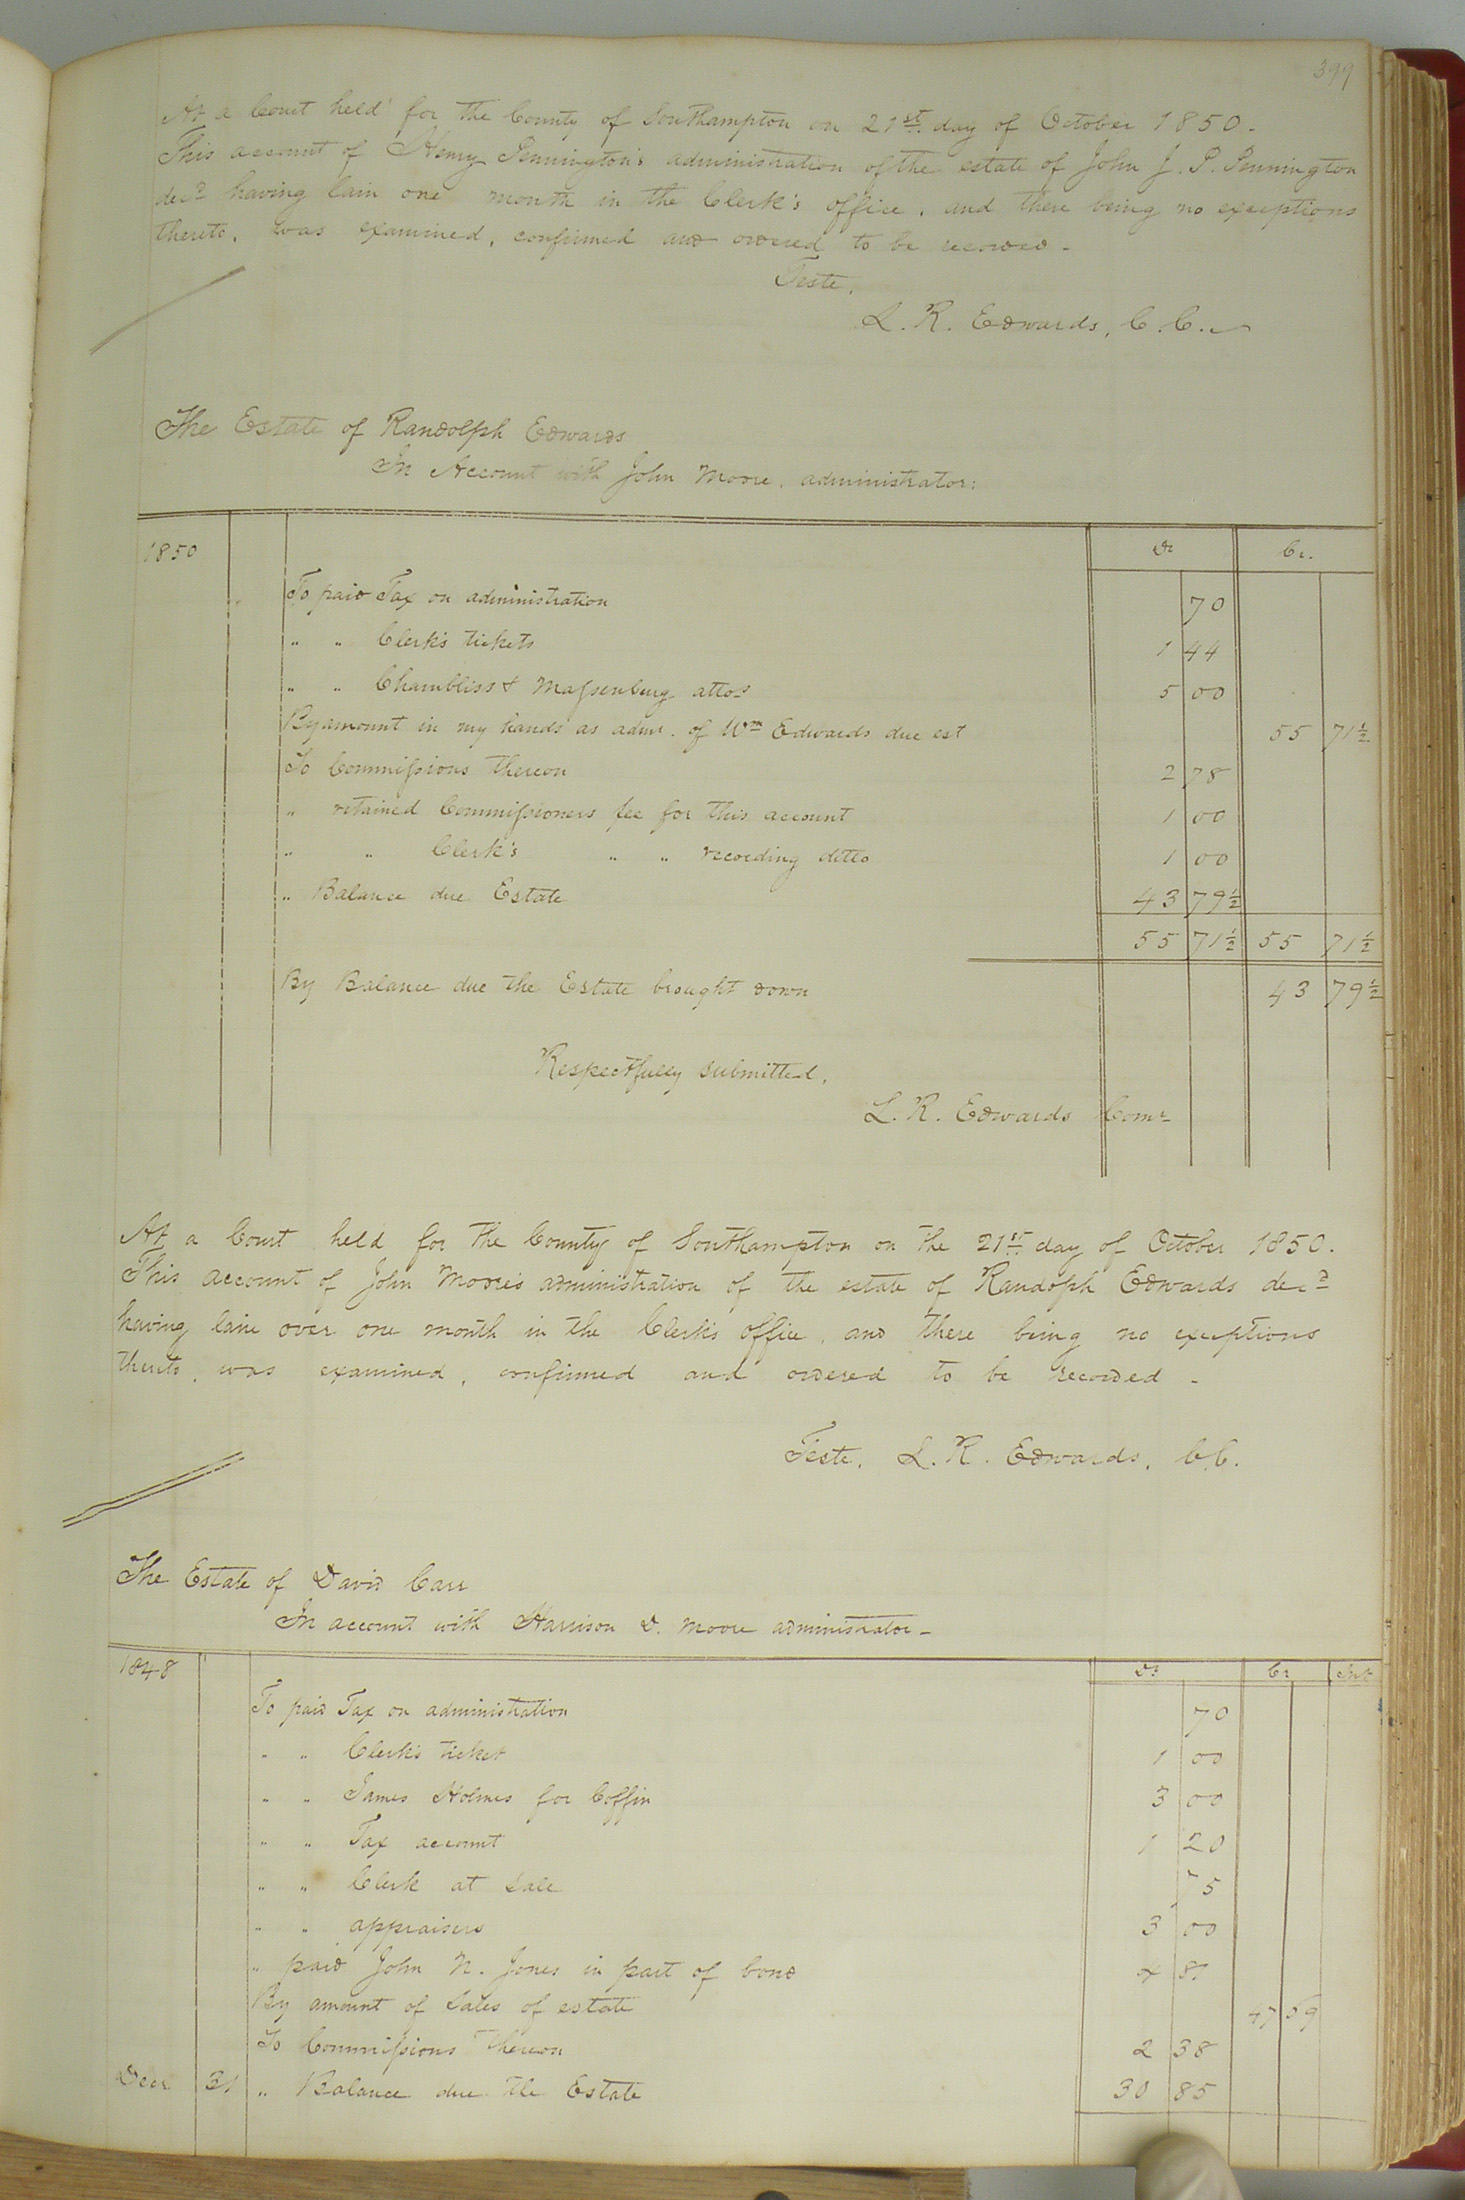 399
At a Court held for the County of Southampton on 21st day of October 1850.
This account of Henry Pennington's administration of the estate of John J. P. Pennington
decd having lain one month in the Clerk's office, and there being no exceptions
thereto, was examined, confirmed and ordered to be recorded -
Teste,
L. R. Edwards, C. C.
The Estate of Randolph Edwards
In Account with John Moore, administrator:
1850 Dr Cr.
To paid Tax on administration 70
" " Clerk's tickets 1 44
" " Chambliss & Massenburg attos 5 00
By amount in my hands as admr. of Wm Edwards due est 55 71½
To Commissions thereon 2 78
" retained Commissioners fee for this account 1 00
" " Clerk's " " recording ditto 1 00
" Balance due Estate 43 79½
55 71½ 55 71½
By Balance due the Estate brought down 43 79½
Respectfully submitted,
L. R. Edwards Comr
At a Court held for the County of Southampton on the 21st day of October 1850.
This account of John Moore's administration of the estate of Randolph Edwards decd
having lain over one month in the Clerk's office, and there being no exceptions
thereto, was examined, confirmed and ordered to be recorded -
Teste, L. R. Edwards, C. C.
The Estate of David Carr
In account with Harrison D. Moore administrator -
1848 Dr Cr Int
To paid Tax on administration 70
" " Clerk's ticket 1 00
" " James Holmes for Coffin 3 00
" " Tax account 1 20
" " Clerk at Sale 75
" " appraisers 3 00
" paid John N. Jones in part of bond 4
By amount of Sales of estate 47 59
To Commissions thereon 2 38
Decr 31 " Balance due the Estate 30 85